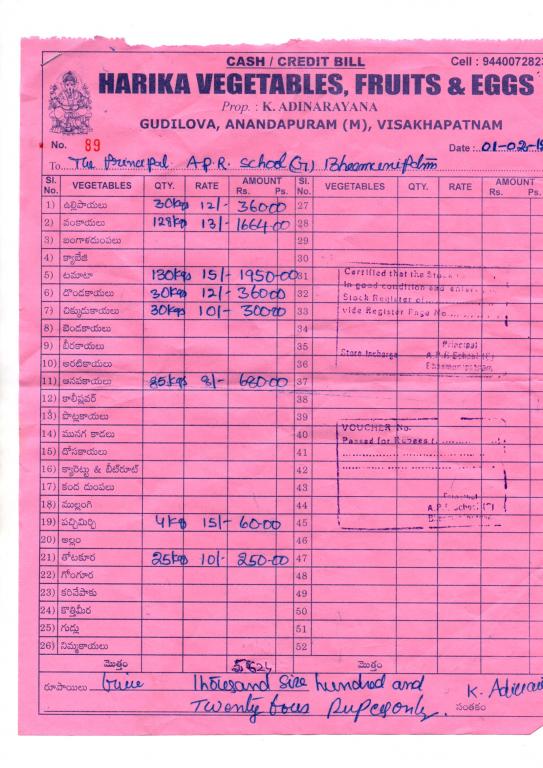 CASH / CREDIT BILL Cell : 944007282
HARIKA VEGETABLES, FRUITS & EGGS
Prop. : K. ADINARAYANA
GUDILOVA, ANANDAPURAM (M), VISAKHAPATNAM
No. 89 Date : 01-02-
To The Principal A.P.R. School (G) Bheemunipatnam
Sl. No. VEGETABLES QTY. RATE AMOUNT Rs. Ps. Sl. No. VEGETABLES QTY. RATE AMOUNT Rs. Ps.
1) ఉల్లిపాయలు 30kgs 12/- 360 00 27
2) వంకాయలు 128kgs 13/- 1664 00 28
3) బంగాళదుంపలు 29
4) క్యాబేజి 30
5) టమాటా 130kgs 15/- 1950-00 31
6) దొండకాయలు 30kgs 12/- 360 00 32
7) చిక్కుడుకాయలు 30kgs 10/- 300 00 33
8) బెండకాయలు 34
9) బీరకాయలు 35
10) అరటికాయలు 36
11) ఆనపకాయలు 85kgs 8/- 680-00 37
12) కాలీఫ్లవర్ 38
13) పొట్లకాయలు 39
14) మునగ కాడలు 40
15) దోసకాయలు 41
16) క్యారెట్టు & బీట్‌రూట్ 42
17) కంద దుంపలు 43
18) ముల్లంగి 44
19) పచ్చిమిర్చి 4kg 15/- 60-00 45
20) అల్లం 46
21) తోటకూర 25kgs 10/- 250-00 47
22) గోంగూర 48
23) కరివేపాకు 49
24) కొత్తిమీర 50
25) గుడ్లు 51
26) నిమ్మకాయలు 52
Certified that the Stock
in good condition and entered
Stock Register of
vide Register Page No.
Principal
Store Incharge A.P.R School (G)
Bheemunipatnam
VOUCHER No.
Passed for Rupees
Principal
A.P.R. School (G)
మొత్తం 5624 మొత్తం
రూపాయలు five thousand six hundred and
Twenty four Rupees only. K. Adinara
సంతకం